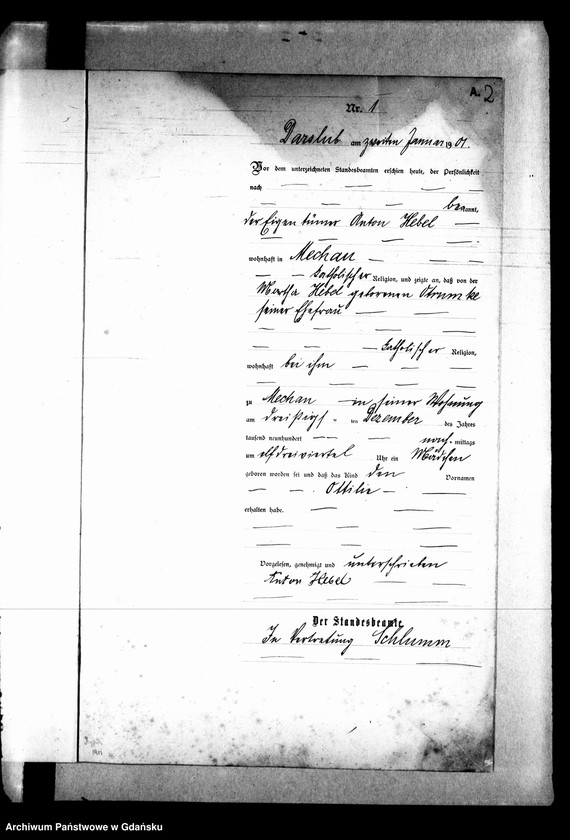 A. 2
Nr. 1
Darslub am zweiten Januar 1901.
Vor dem unterzeichneten Standesbeamten erschien heute, der Persönlichkeit
nach
bekannt,
der Eigentümer Anton Hebel
wohnhaft in Mechau
katholischer Religion, und zeigte an, daß von der
Martha Hebel geborenen Strumke
seiner Ehefrau
katholischer Religion,
wohnhaft bei ihm
zu Mechau in seiner Wohnung
am dreißigsten Dezember des Jahres
tausend neunhundert nachmittags
um elfdreiviertel Uhr ein Mädchen
geboren worden sei und daß das Kind den Vornamen
Ottilie
erhalten habe.
Vorgelesen, genehmigt und unterschrieben
Anton Hebel
Der Standesbeamte.
In Vertretung Schlumm
Archiwum Państwowe w Gdańsku